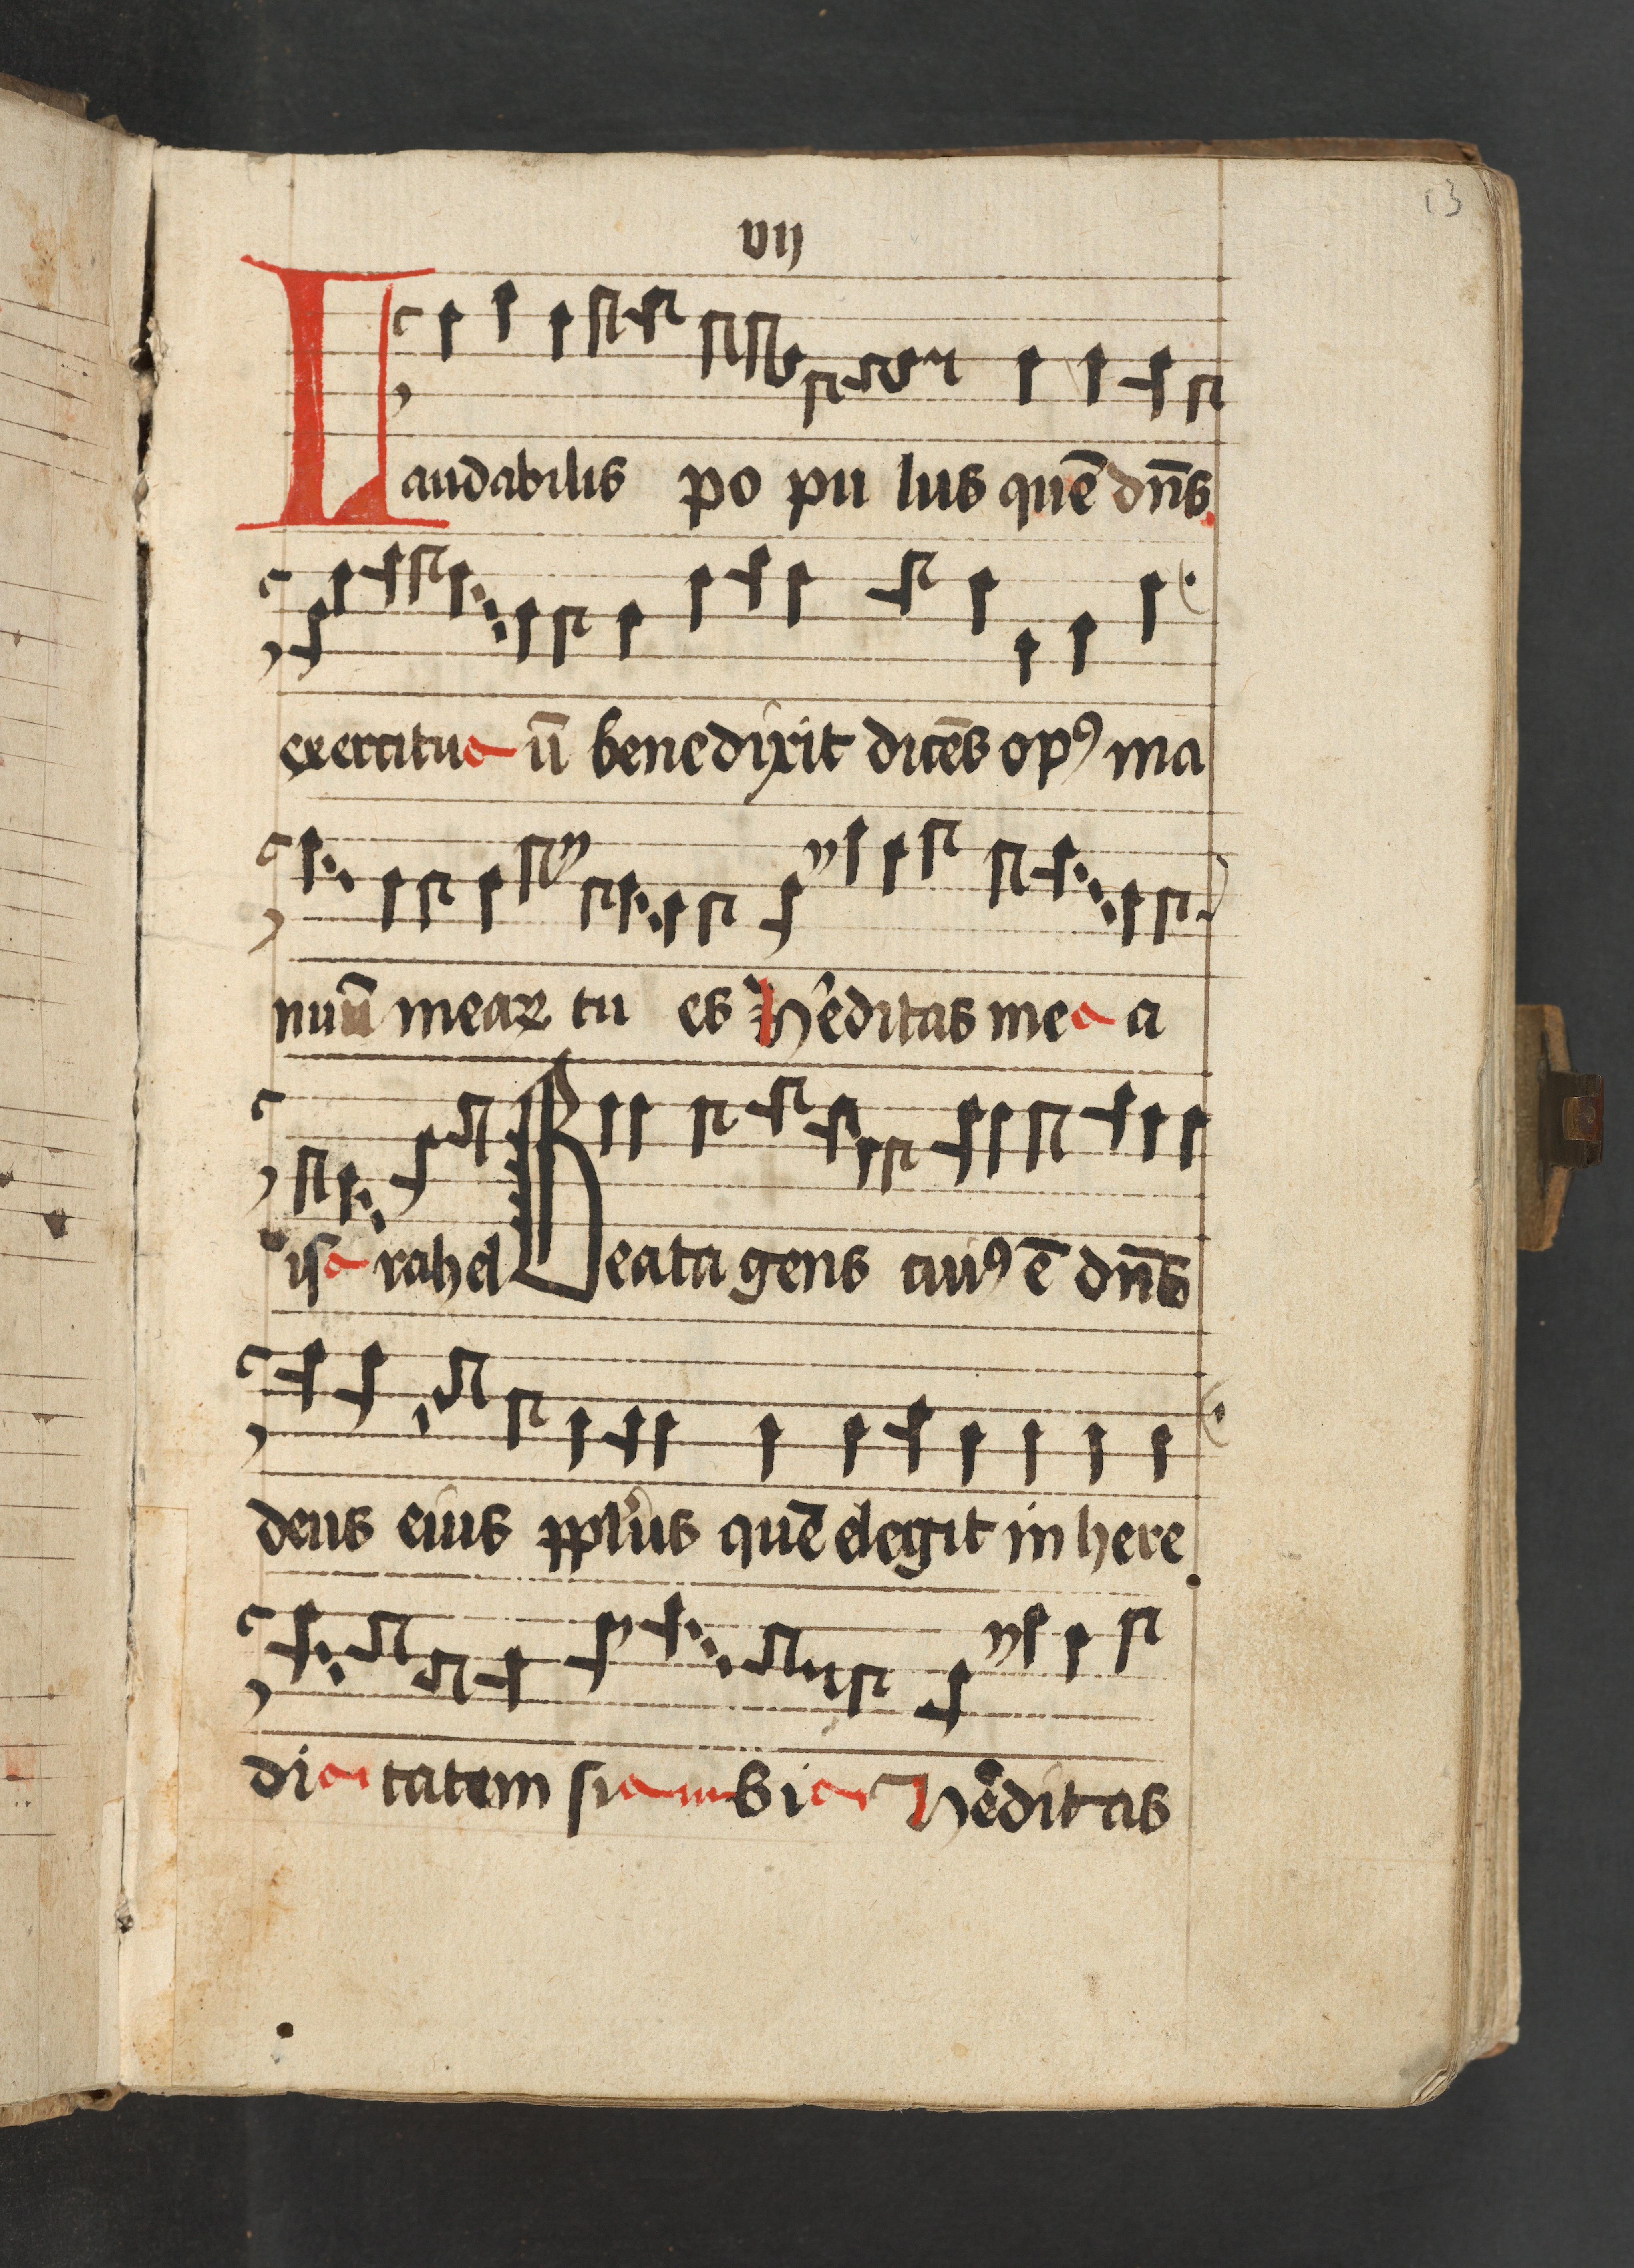 13
vij
Laudabilis po pu lus quē dn̄s
exercitu ū benedixit dicēs opꝰ ma
nuū mearꝝ tu es h'editas me a
is rahel Beata gens cuiꝰ ē dn̄s
deus eius pplus quē elegit in here
di tatem si bi h'editas